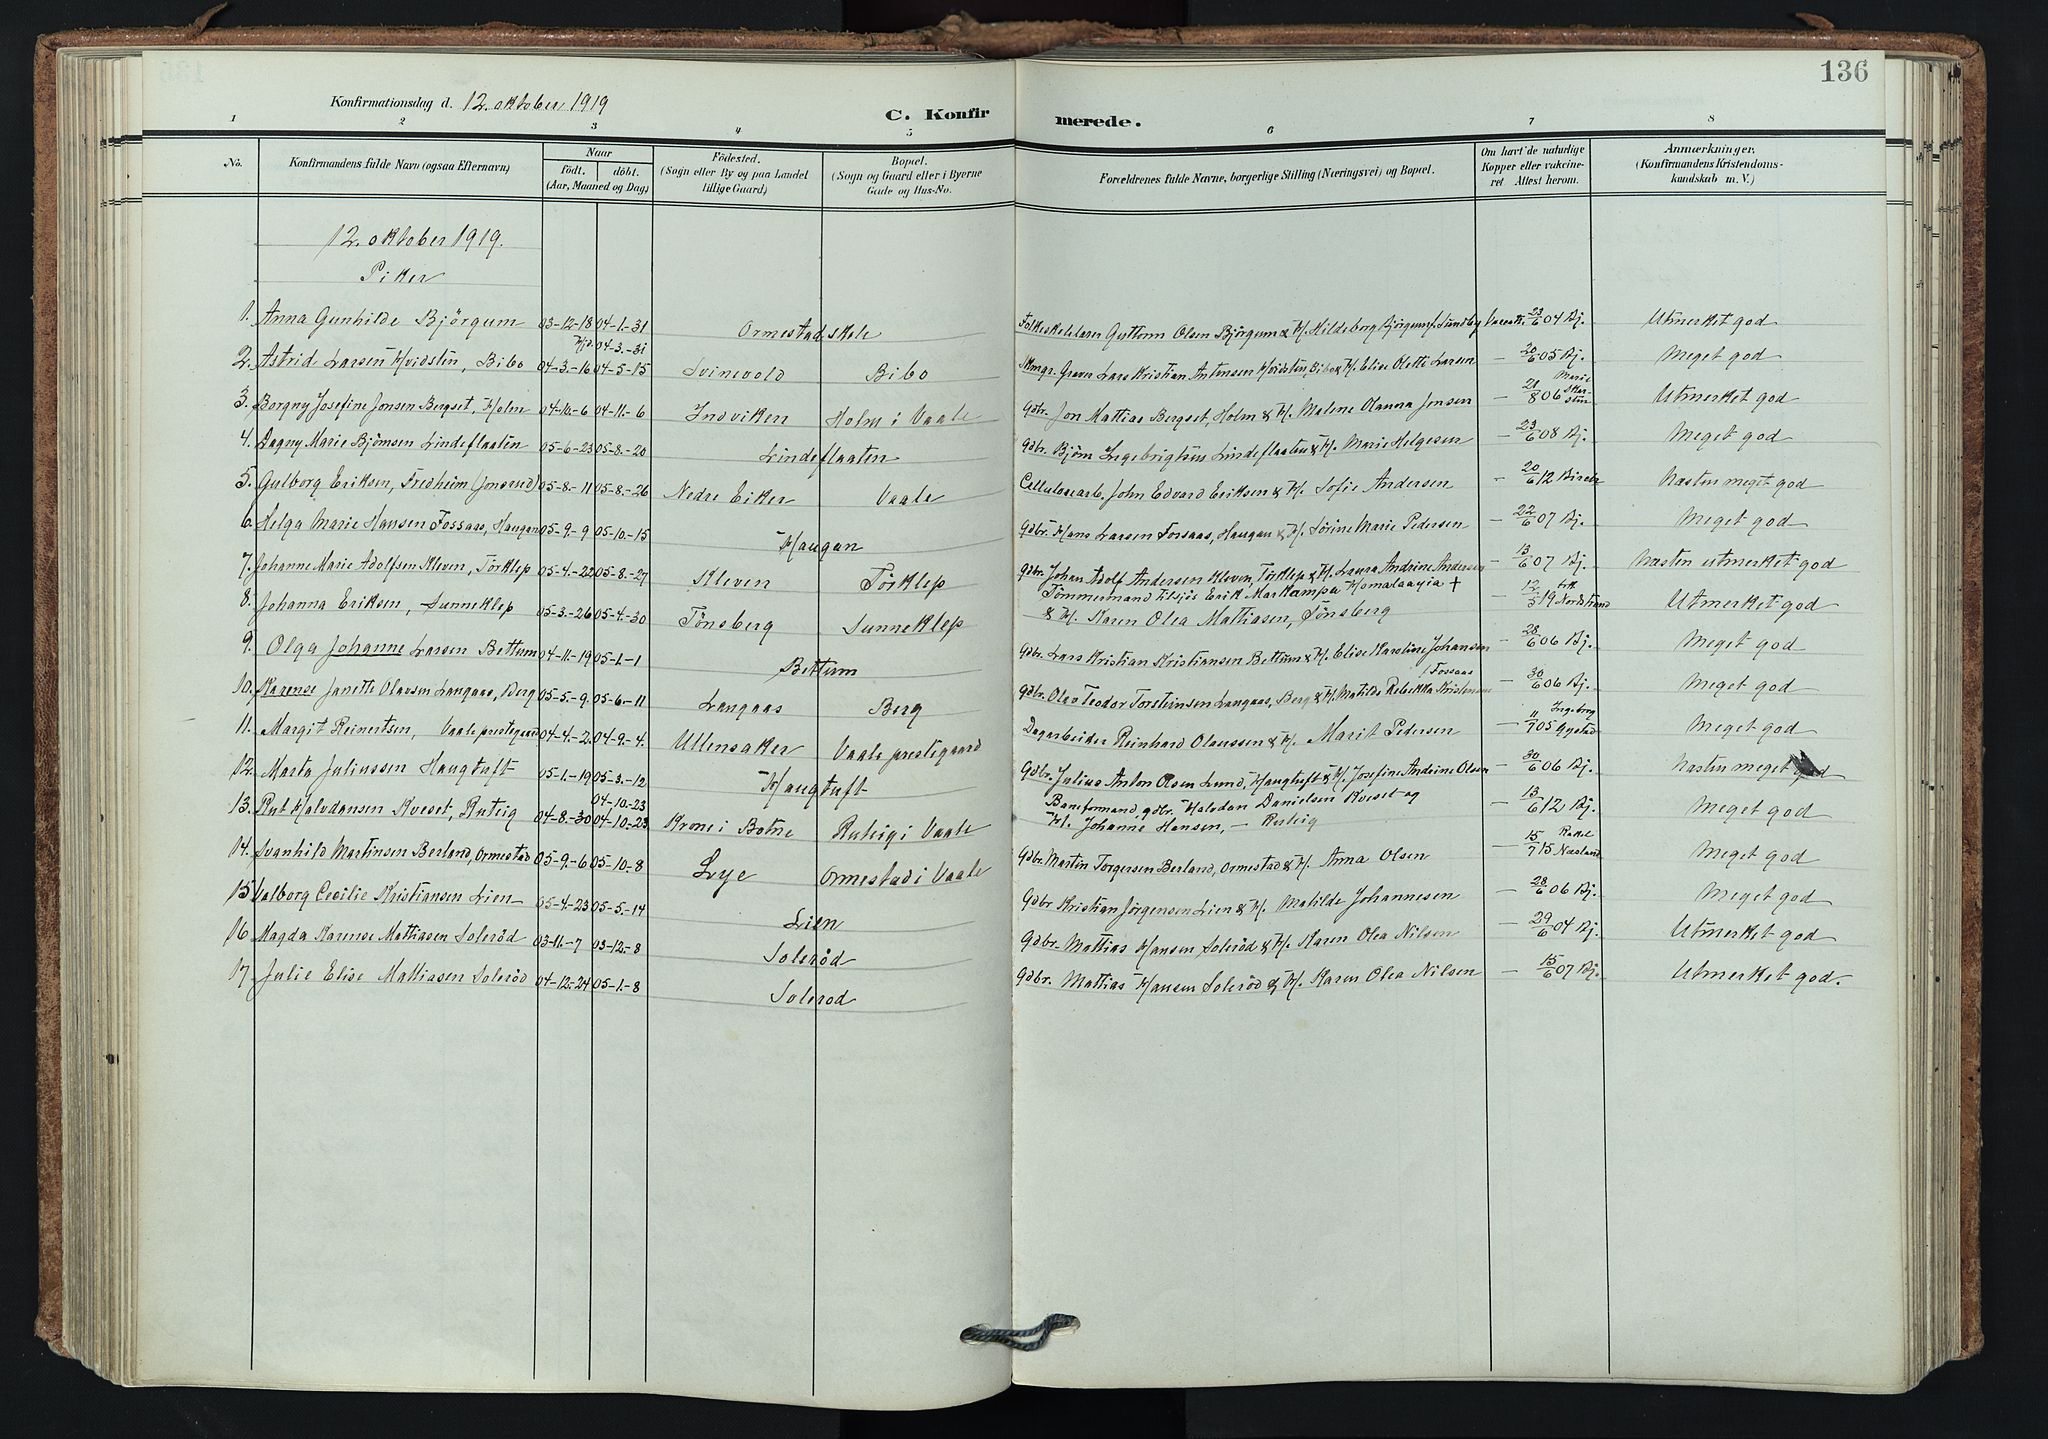 136
Konfirmationsdag d. 12. oktober 1919
C. Konfirmerede.
1 2 3 4 5 6 7 8
No. Konfirmandens fulde Navn (ogsaa Efternavn) Naar født. døbt. (Aar, Maaned og Dag) Fødested. (Sogn eller By og paa Landet tillige Gaard) Bopæl. (Sogn og Gaard eller i Byerne Gade og Hus-No. Forældrenes fulde Navne, borgerlige Stilling (Næringsvei) og Bopæl. Om havt de naturlige Kopper eller vaccineret Attest herom. Anmærkninger. (Konfirmandens Kristendomskundskab m. V.)
12. oktober 1919.
Piker
1. Anna Gunhilde Bjørgum 03-12-18 04-1-31 Ormestad skole Folkeskolelærer Guttorm Olsen Bjørgum & H. Hildeborg Bjørgum f. Sundby Vaccit. 23/6 04 Bj. Utmerket god
2. Astrid Larsen Hvidsten, Bibo 04-3-16 04-3-31 04-5-15 Svinevold Bibo Graver Lars Kristian Antonsen Hvidsten, Bibo & H. Elise Olette Larsen — 20/6 05 Bj. Meget god
3. Borgny Josefine Jonsen Bergset, Holm 04-10-6 04-11-6 Indviken Holm i Vaale Gdbr. Jon Mattias Bergset, Holm & H. Malene Olanna Jensen — 21/8 06 Marie Utmerket god
4. Dagny Marie Bjørnsen Lindeflaaten 05-6-23 05-8-20 Lindeflaaten Gdbr. Bjørn Ingebrigtsen Lindeflaaten & H. Marie Helgesen — 23/6 08 Bj. Meget god
5. Gulborg Eriksen, Fredheim (Jonsrud) 05-8-11 05-8-26 Nedre Eiker Vaale Cellulosearb. John Edvard Eriksen & H. Sofie Andersen — 20/6 12 Næsten meget god
6. Helga Marie Hansen Fossaas, Haugan 05-9-9 05-10-15 Haugan Gdbr. Hans Larsen Fossaas, Haugan & H. Sørine Marie Pedersen — 22/6 07 Bj. Meget god
7. Johanne Marie Adolfsen Kleven, Tørklep 05-4-22 05-8-27 Kleven Tørklep Gdbr. Johan Adolf Andersen Kleven, Tørklep & H. Laura Andrine Andersen — 13/6 07 Bj. Næsten utmerket god
8. Johanna Eriksen, Sunneklep 05-3-26 05-4-30 Tønsberg Sunneklep Tømmermand tilsjøs Erik Markampa Homalaayia + — 12/5 19 Nordstrand Utmerket god
& H. Karen Olea Mattiasen, Tønsberg
9. Olga Johanne Larsen Bettum 04-11-19 05-1-1 Bettum Gdbr. Lars Kristian Kristiansen Bettum & H. Elise Karoline Johansen — 28/6 06 Bj. Meget god
10. Karense Janette Olavsen Langaas, Berg 05-5-9 05-6-11 Langaas Berg Gdbr. Olav Teodor Torsteinsen Langaas, Berg & H. Matilde Rebekka Kristensen / Fossaas — 30/6 06 Bj. Meget god
11. Margit Reinertsen, Vaale prestegaard 04-4-2 04-9-4 Ullensaker Vaale prestegaard Dagarbeider Reinhard Olaussen & H. Marit Pedersen — 11/7 05 Ingeborg Gystad Meget god
12. Marta Juliussen Haugtuft 05-1-19 05-3-12 Haugtuft Gdbr. Julius Anton Olsen Lund, Haugtuft & H. Josefine Andrine Olsen — 30/6 06 Bj. Næsten meget god
13. Rut Halvdansen Kveset, Ruteig 04-8-30 04-10-23 04-10-23 Krone i Botne Ruteig i Vaale Baneformand, gdbr. Halvdan Danielsen Kveset og — 13/6 12 Bj. Meget god
H. Johanne Hansen, — Ruteig
14. Svanhild Martinsen Berland, Ormestad 05-9-6 05-10-8 Lye Ormestad i Vaale Gdbr. Martin Torgersen Berland, Ormestad & H. Anna Olsen — 15/7 15 Rakel Næsland Meget god
15 Valborg Cecilie Kristiansen Lien 05-4-23 05-5-14 Lien Gdbr Kristian Jørgensen Lien & H. Matilde Johannesen — 28/6 06 Bj. Meget god
16 Magda Karense Mattiasen Solerød 03-11-7 03-12-8 Solerød Gdbr. Mattias Hansen Solerød & H. Karen Olea Nilsen — 29/6 04 Bj. Utmerket god
17. Julie Elise Mattiasen Solerød 04-12-24 05-1-8 Solerød Gdbr. Mattias Hansen Solerød & H. Karen Olea Nilsen — 15/6 07 Bj. Utmerket god.